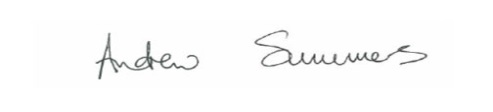 Andrew Summers